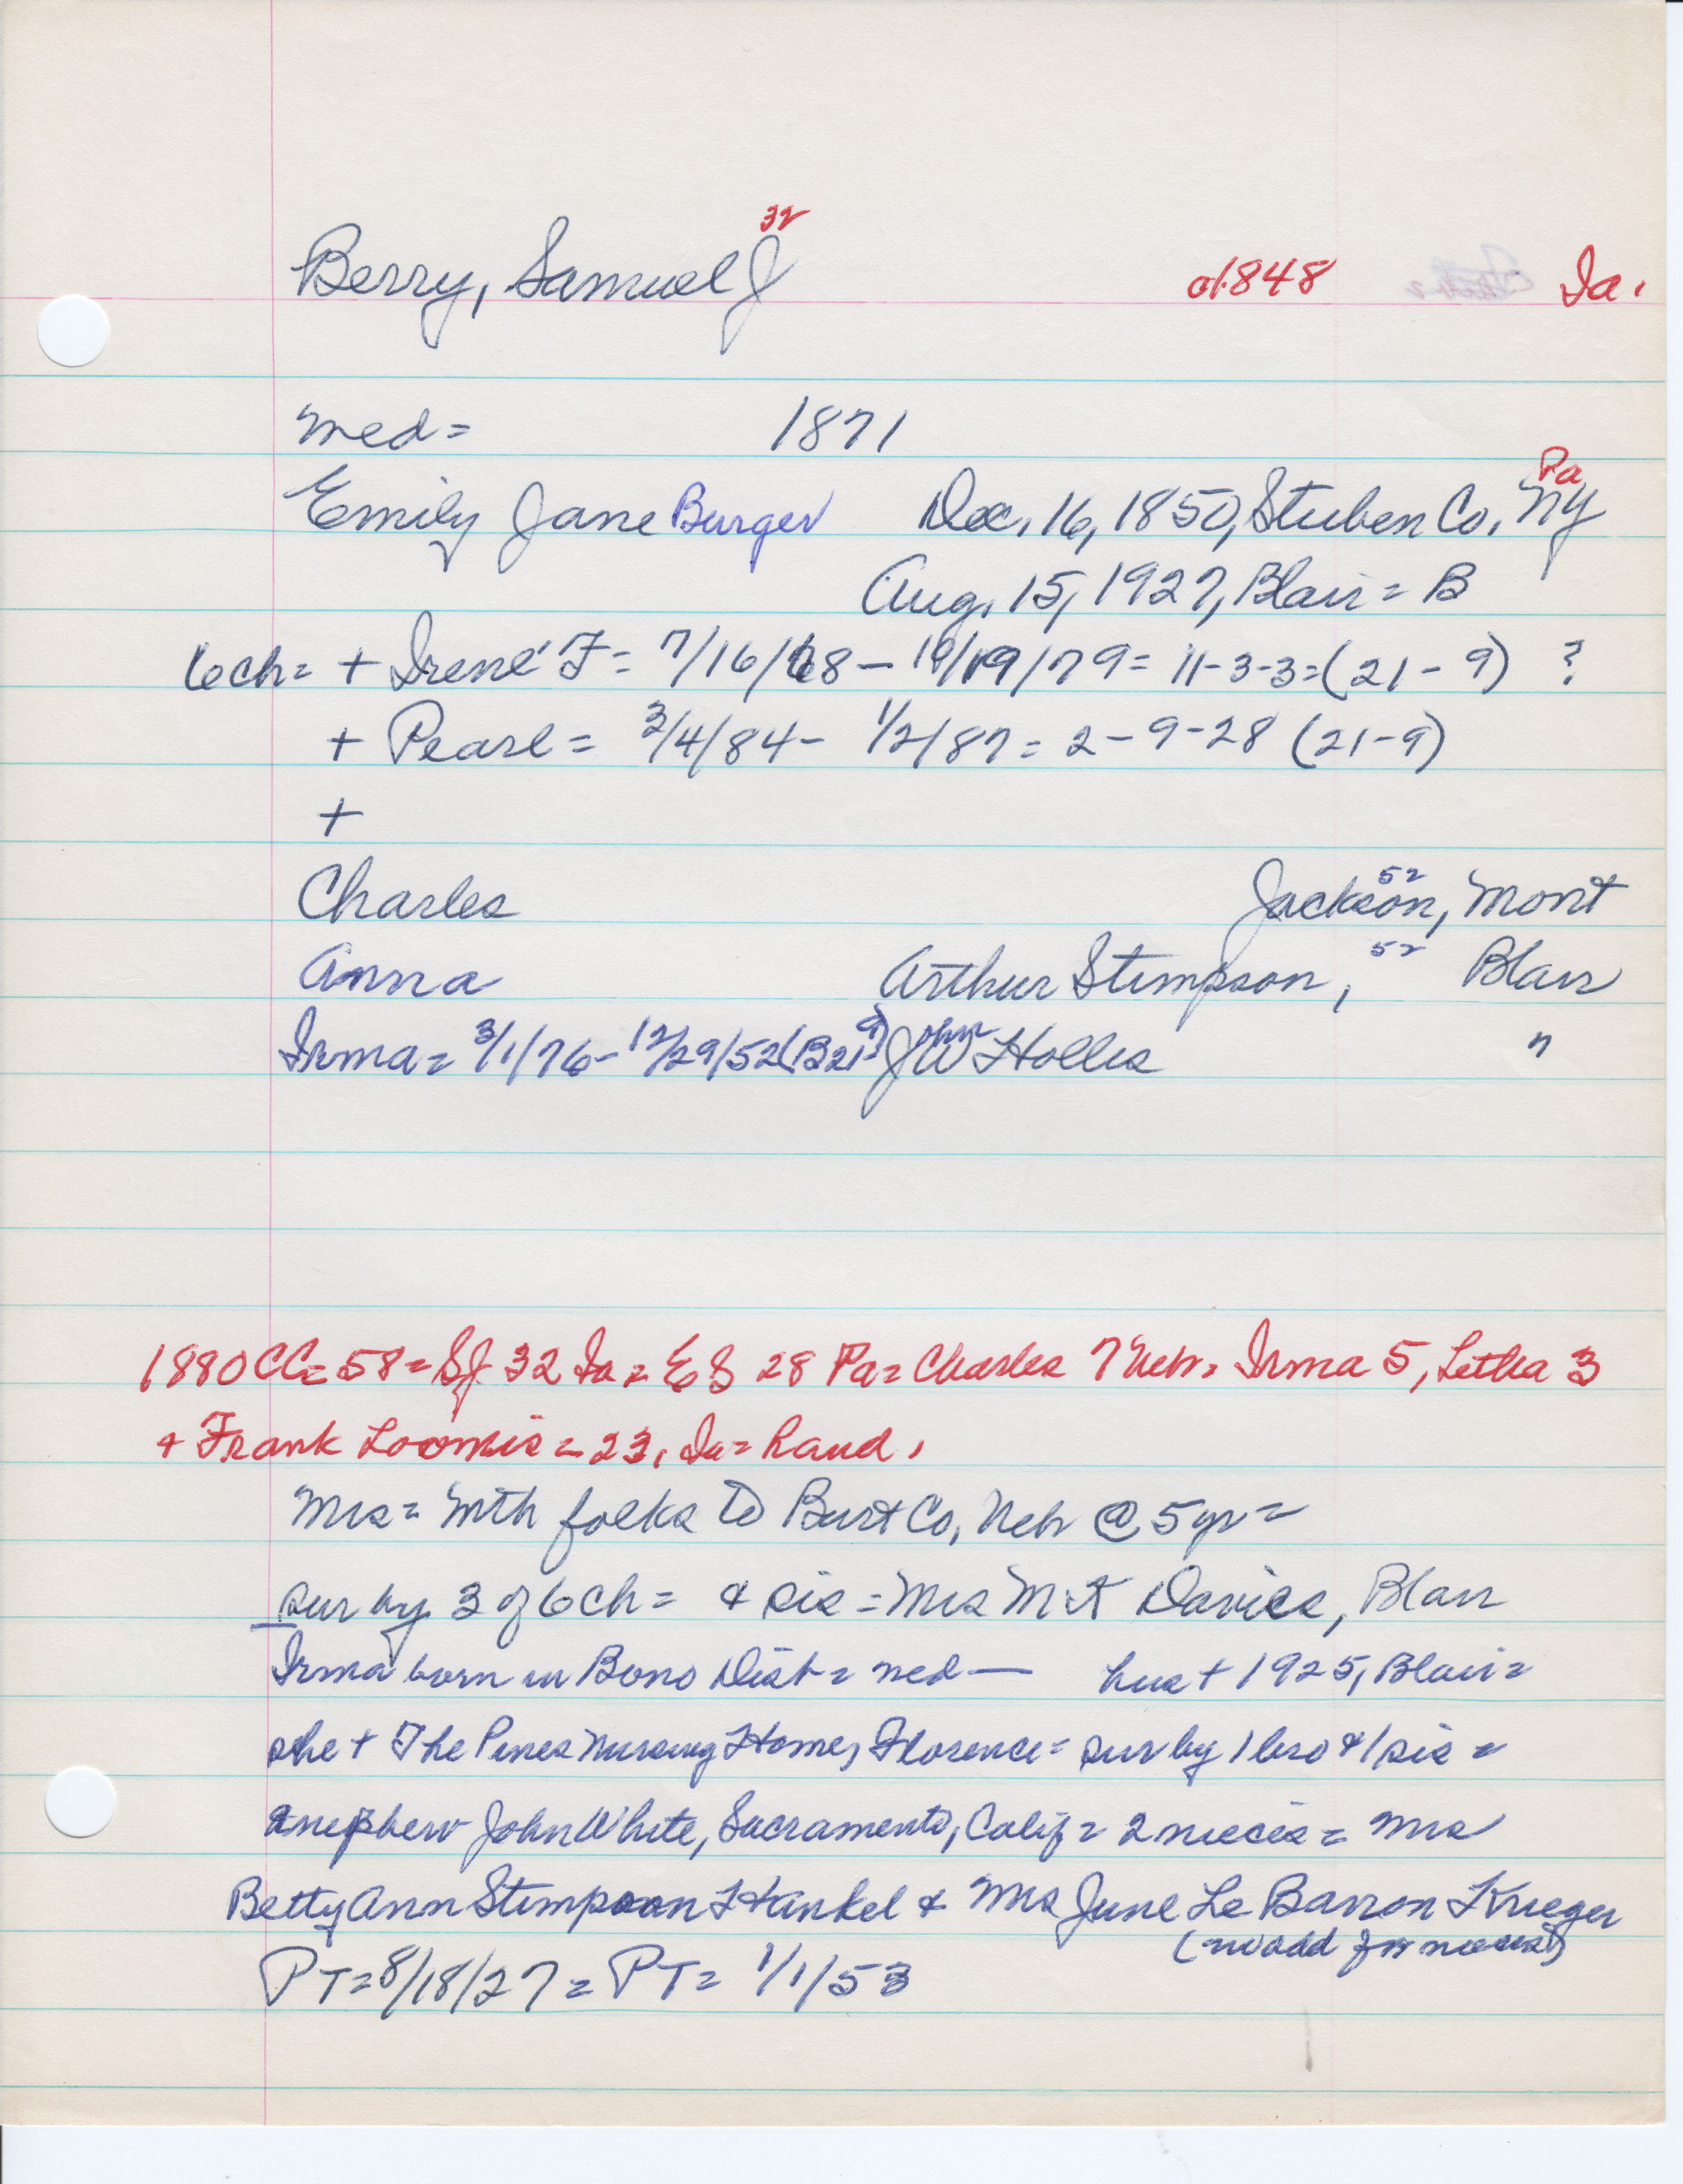 32
Berry, Samuel J c1848 Ia.
med = 1871
Pa
Emily Jane Burger Dec. 16, 1850, Stuben Co, NY
Aug. 15, 1927, Blair = B
6ch = + Irene F = 7/16/68 - 10/19/79 = 11-3-3 = (21-9) ?
+ Pearl = 3/4/84 - 1/2/87 = 2-9-28 (21-9)
+
Charles Jackson, 52 Mont
Anna Arthur Stimpson, 52 Blair
Irma = 3/1/76 - 12/29/52 (B21-9) John JW Hollis "
1880 CC = 58 = SJ 32 Ia = EJ 28 Pa = Charles 7 Neb. Irma 5, Letha 3
+ Frank Loomis = 23, Ia = hand.
Mrs = Mth folks to Burt Co, Neb @ 5 yr =
sur by 3 of 6 ch = & sis = Mrs M A Davies, Blair
Irma born in Bono Dist = med — hus + 1925, Blair =
she + The Pines Nursing Home, Florence = sur by 1 bro & 1 sis =
nephew John White, Sacramento, Calif = 2 nieces = Mrs
Betty Ann Stimpson Hankel & Mrs June Le Barron Krieger
(no add for nieces)
PT = 8/18/27 = PT = 1/1/53